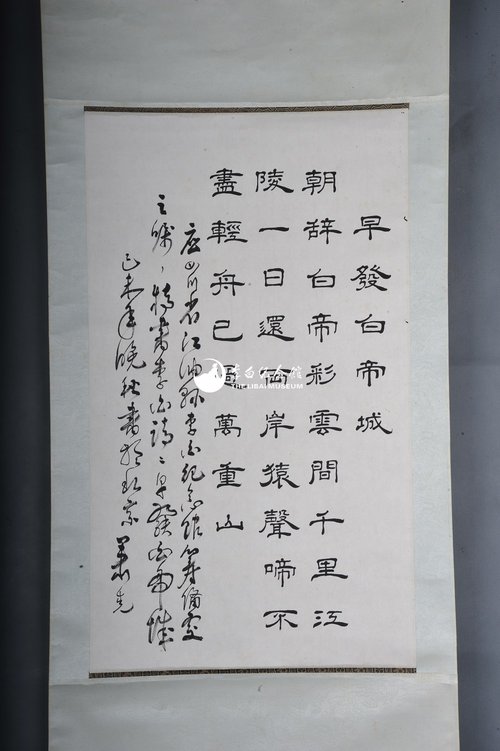 早發白帝城
朝辞白帝彩雲間千里江
陵一日還両岸猿聲啼不
盡輕舟已過萬重山
应四川省江油縣李白紀念館筹備處
之嘱，特書李白詩：早發白帝城
己未年晚秋書
李白纪念馆
THE LIBAI MUSEUM